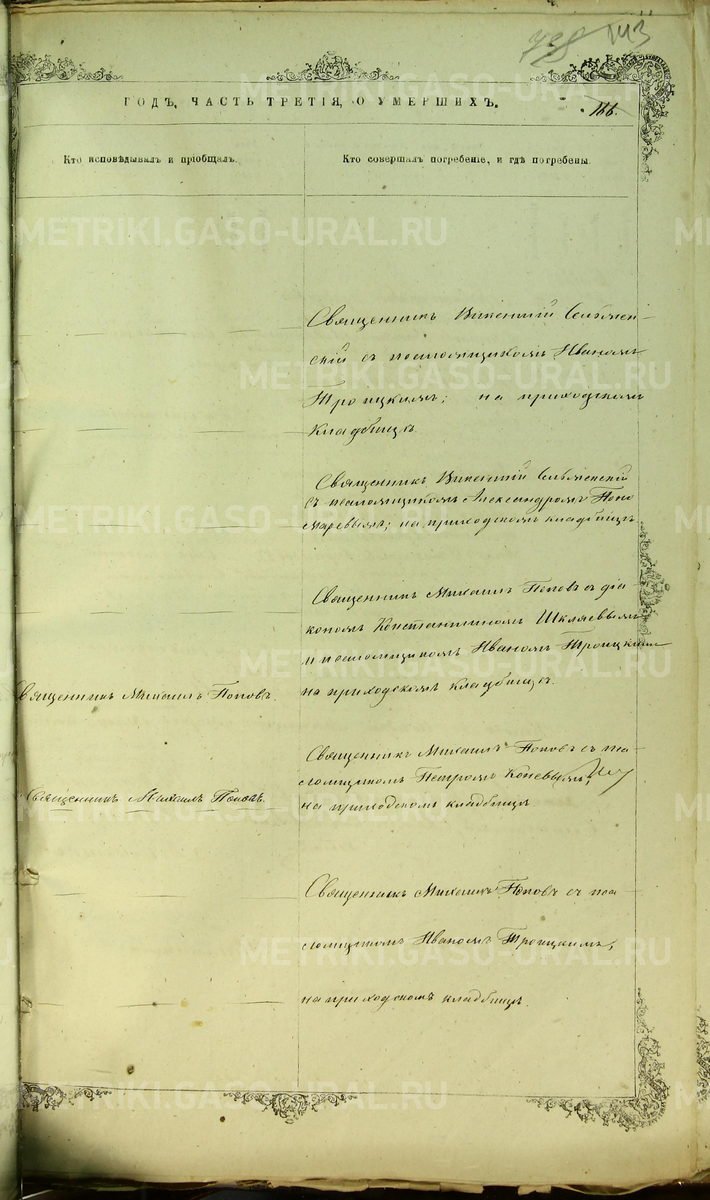 ГОДЪ, ЧАСТЬ ТРЕТІЯ, О УМЕРШИХЪ.
166.
Кто исповѣдывалъ и пріобщалъ.
Кто совершалъ погребеніе, и гдѣ погребены.
Священникъ Викентій
скій съ псаломщикомъ Иваномъ
Троицкимъ; на приходскомъ
кладбищѣ.
Священникъ Викентій
съ псаломщикомъ Александромъ Поно
маревымъ; на приходскомъ кладбищѣ
Священникъ Михаилъ Поповъ съ діа
кономъ Константиномъ Шкляевымъ
и псаломщикомъ Иваномъ Троицкимъ
на приходскомъ кладбищѣ.
Священникъ Михаилъ Поповъ.
Священникъ Михаилъ Поповъ съ пса
ломщикомъ Петромъ Коневымъ,
на приходскомъ кладбищѣ
Священникъ Михаилъ Поповъ.
Священникъ Михаилъ Поповъ съ пса
ломщикомъ Иваномъ Троицкимъ,
на приходскомъ кладбищѣ.
METRIKI.GASO-URAL.RU